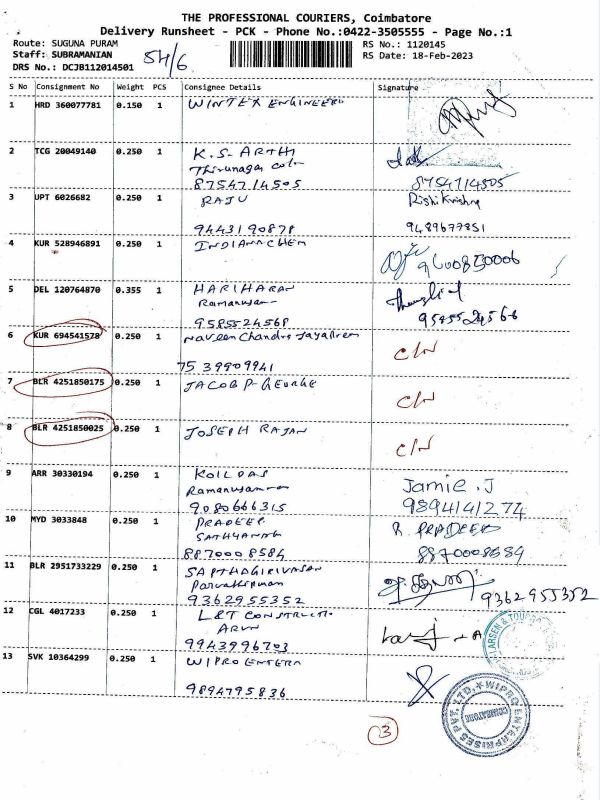 THE PROFESSIONAL COURIERS, Coimbatore
Delivery Runsheet - PCK - Phone No.:0422-3505555 - Page No.:1
Route: SUGUNA PURAM RS No.: 1120145
Staff: SUBRAMANIAN RS Date: 18-Feb-2023
DRS No.: DCJB112014501 54/6
S No Consignment No Weight PCS Consignee Details Signature
1 HRD 360077781 0.150 1 WINTEX ENGINEERS
2 TCG 20049140 0.250 1 K.S-ARTHI
Thirunagar Colo
8754714505 8754714505
3 UPT 6026682 0.250 1 RAJU Rishi Krishna
9443190878 9489677851
4 KUR 528946891 0.250 1 INDIANCHEM 9600850006
5 DEL 120764870 0.355 1 HARIHARAN
Ramanusam
9585524568 9585524566
6 KUR 694541578 0.250 1 Naveen Chandra Jayadreem C/N
75 39909941
7 BLR 4251850175 0.250 1 JACOB P-GEORGE C/N
8 BLR 4251850025 0.250 1 JOSEPH RAJAN C/N
9 ARR 30330194 0.250 1 KOILDAS Jamie.J
Ramanusam
9080666315 9894141274
10 MYD 3033848 0.250 1 PRADEEP R PRADEEP
SATHYANATH
8870008584 8870008584
11 BLR 2951733229 0.250 1 SAPTHAGIRIVASAN
Parvathipuram
9362955352 9362955352
12 CGL 4017233 0.250 1 L&T CONSTRUCTI
ARUN
9943996703
LARSEN & TOUBRO
13 SVK 10364299 0.250 1 WIPRO ENTERPR
9894795836
WIPRO ENTERPRISES PVT. LTD.
COIMBATORE
3